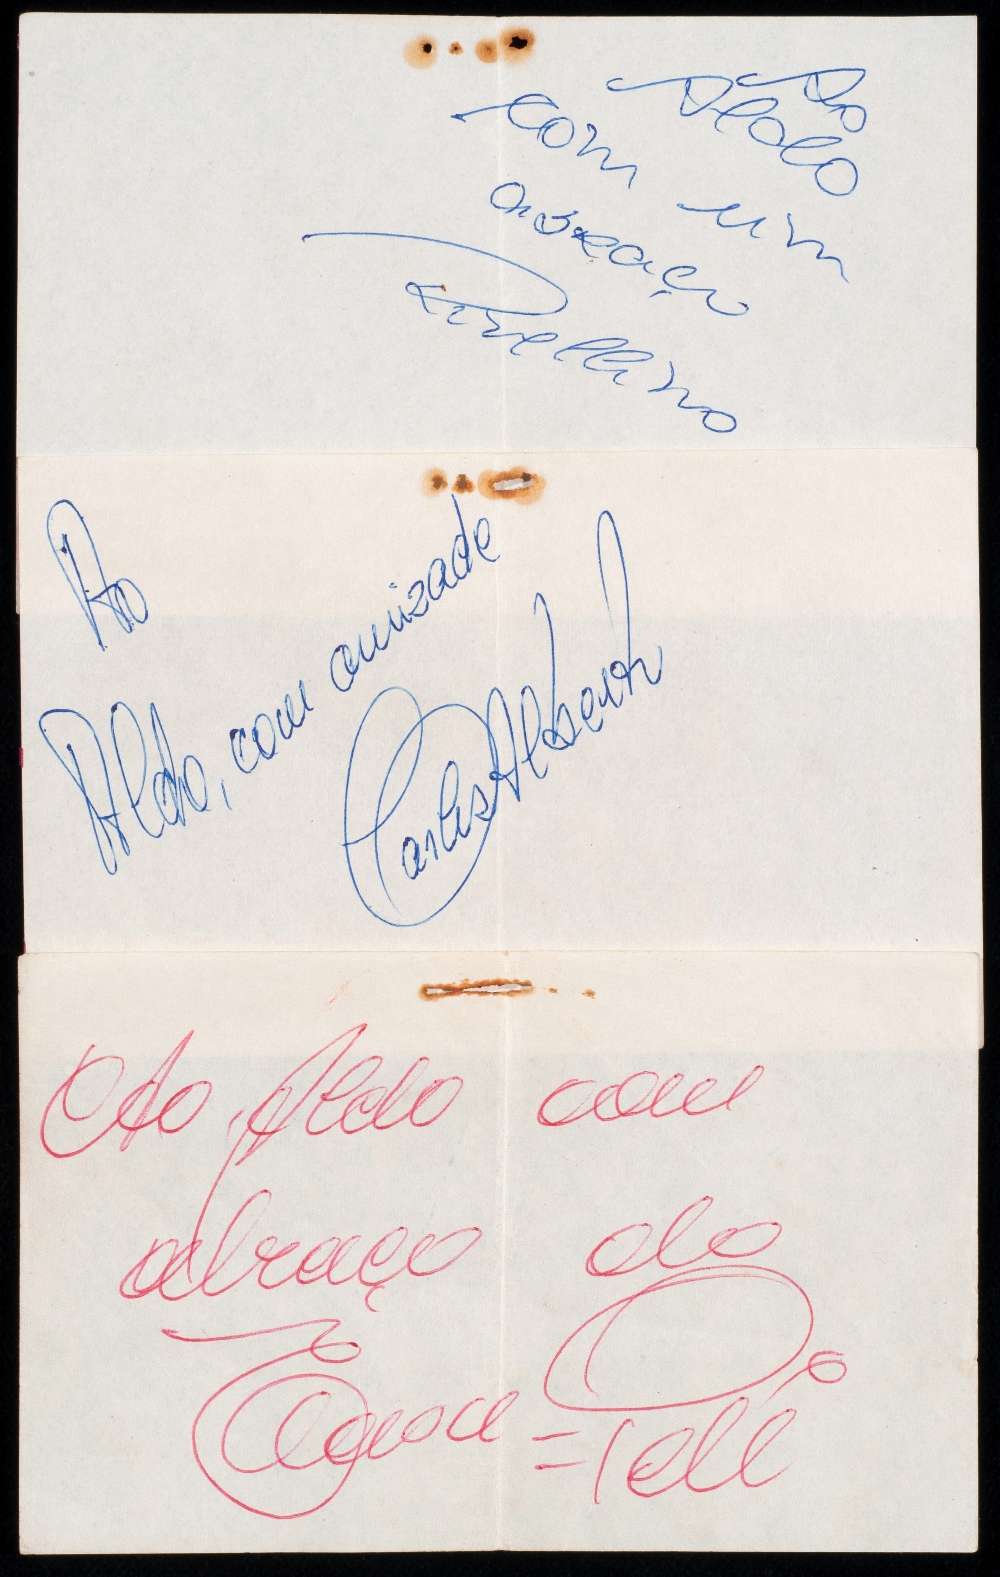 Ao
Aldo
com um
abraço
Rivellino
Ao
Aldo, com amizade
Carlos Alberto
Ao Aldo com
abraço do
Edson = Pelé